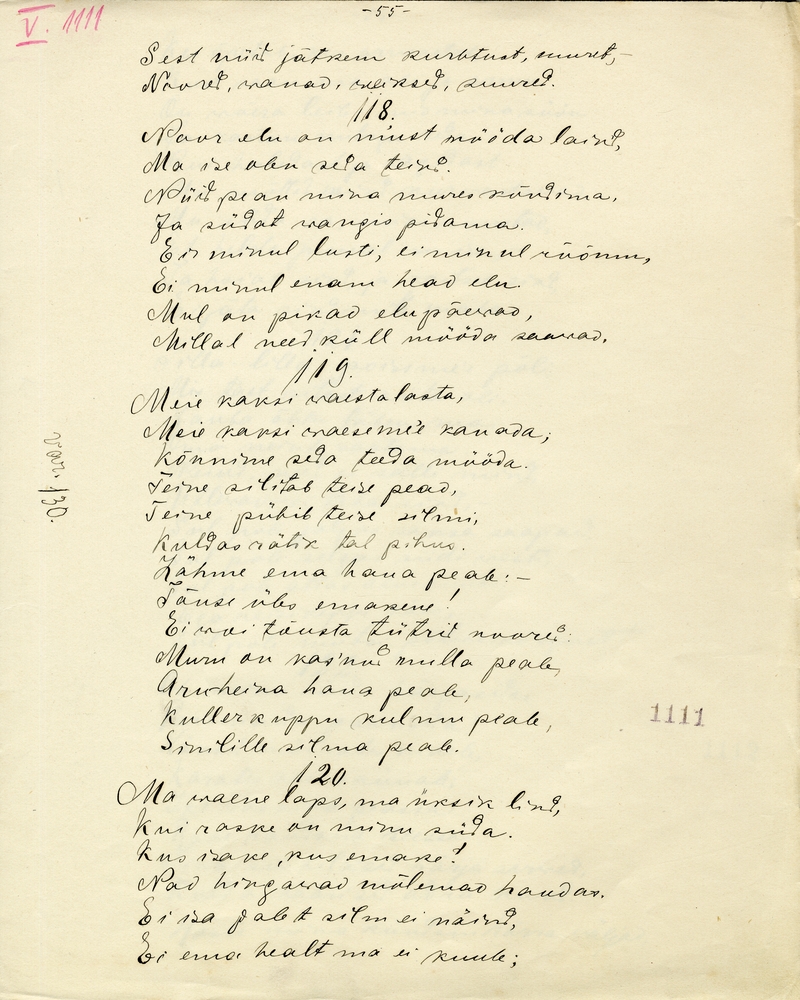 -55-
V. 1111
Sest nüid jätkem kurbtust, suuret, -
Noored, wanad, weiksed, suured.
118.
Noor elu on miust mööda laind,
Ma ise olen seda teind.
Nüid pean mina mures kõndima,
Ja südat wangis pidama.
Ei minul lusti, ei minul rõõmu,
Ei minul enam head elu.
Mul on pikad elupäewad,
Millal need küll mööda saawad.
119.
Meie kaksi waestalasta,
Meie kaksi waesemee kanada;
Kõnnime seda teeda mööda.
Teine silitab teise pead,
Teine pühib teise silmi,
Kuldas rätik tal pihus.
Lähme ema haua peale: -
Tõuse üles emakene!
Ei woi tõusta tütrid noored:
Muru on kas'nud mulla peale,
Aruheina haua peale,
Kullerkuppu kulmu peale,
Sinilille silma peale.
var. 130.
1111
120.
Ma waene laps, ma üksik lind,
Kui raske on minu süda.
Kus isake, kus emake!
Nad hingawad mõlemad haudas.
Ei isa palet silm ei näind,
Ei ema healt ma ei kuule;